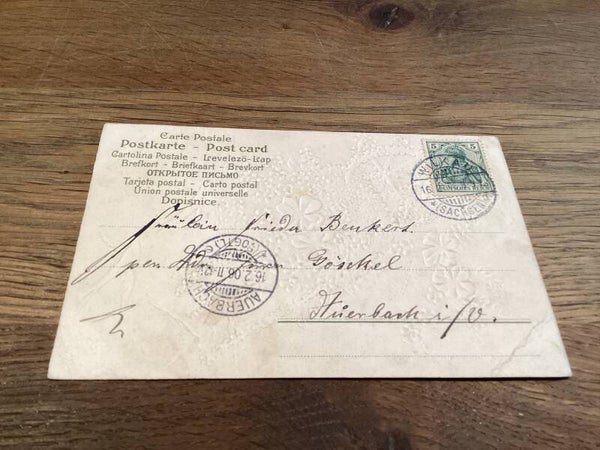 Carte Postale
Postkarte - Post card
Cartolina Postale - Levelező-Lap
Brefkort - Briefkaart - Brevkort
ОТКРЫТОЕ ПИСЬМО
Tarjeta postal - Carto postal
Union postale universelle
Dopisnice.
5 5
16
(SACHSEN)
Fräulein Frieda Benkert.
Göschel
Auerbach i/V.
AUERBACH (VOGTL)
16.2.06.11-12